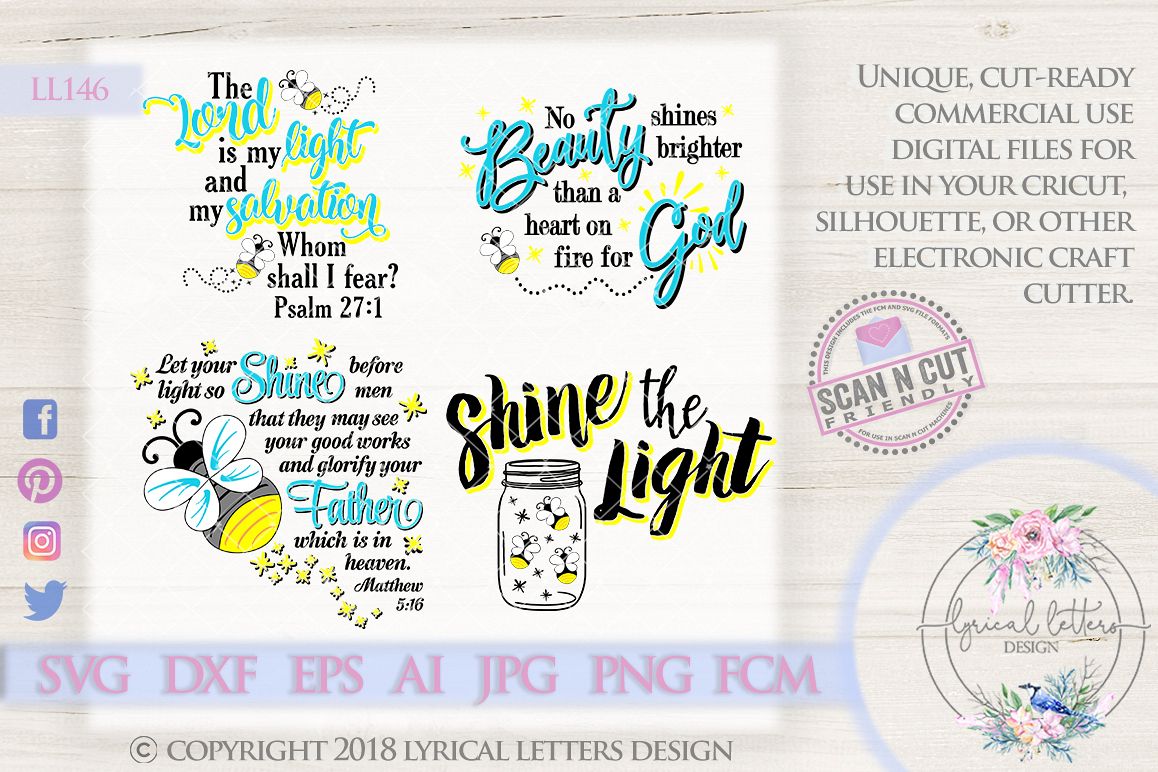 LL146
The
Lord
is my light
and
my salvation
Whom
shall I fear?
Psalm 27:1
No Beauty shines
brighter
than a
heart on
fire for God
Let your Shine before
light so men
that they may see
your good works
and glorify your
Father
which is in
heaven.
Matthew
5:16
Shine the
Light
UNIQUE, CUT-READY
COMMERCIAL USE
DIGITAL FILES FOR
USE IN YOUR CRICUT,
SILHOUETTE, OR OTHER
ELECTRONIC CRAFT
CUTTER.
THIS DESIGN INCLUDES THE FCM AND SVG FILE FORMATS
SCAN N CUT
FRIENDLY
FOR USE IN SCAN N CUT MACHINES
lyrical letters
DESIGN
SVG DXF EPS AI JPG PNG FCM
© COPYRIGHT 2018 LYRICAL LETTERS DESIGN